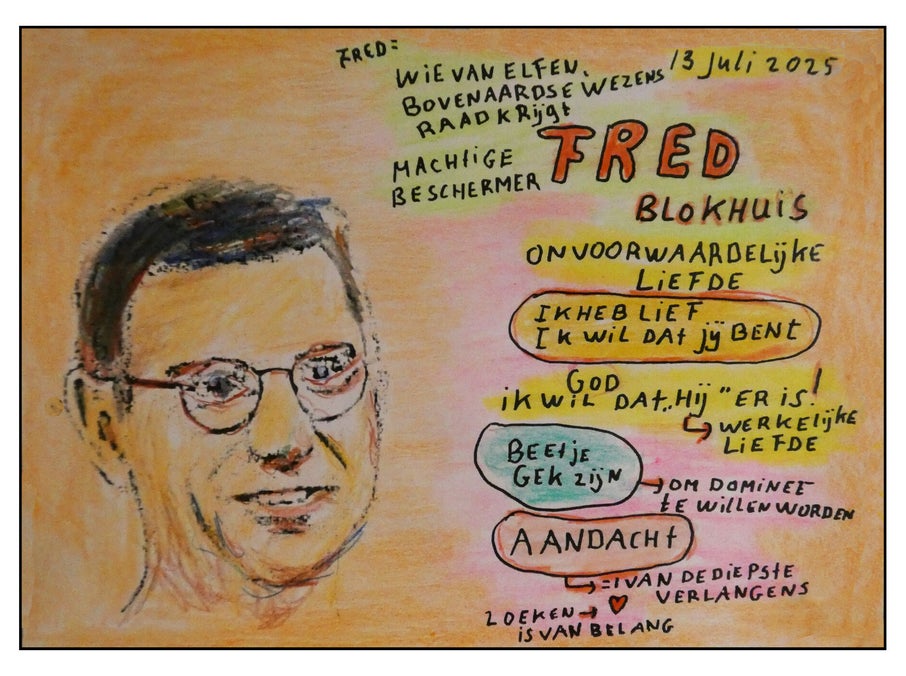 FRED:
WIE VAN ELFEN,
BOVENAARDSE WEZENS
RAAD KRIJGT
13 JULI 2025
MACHTIGE
BESCHERMER
FRED
BLOKHUIS
ONVOORWAARDELIJKE
LIEFDE
IK HEB LIEF
IK WIL DAT JIJ BENT
GOD
IK WIL DAT „HIJ" ER IS!
WERKELIJKE
LIEFDE
BEETJE
GEK ZIJN
OM DOMINEE
TE WILLEN WORDEN
AANDACHT
=1 VAN DE DIEPSTE
VERLANGENS
ZOEKEN
IS VAN BELANG